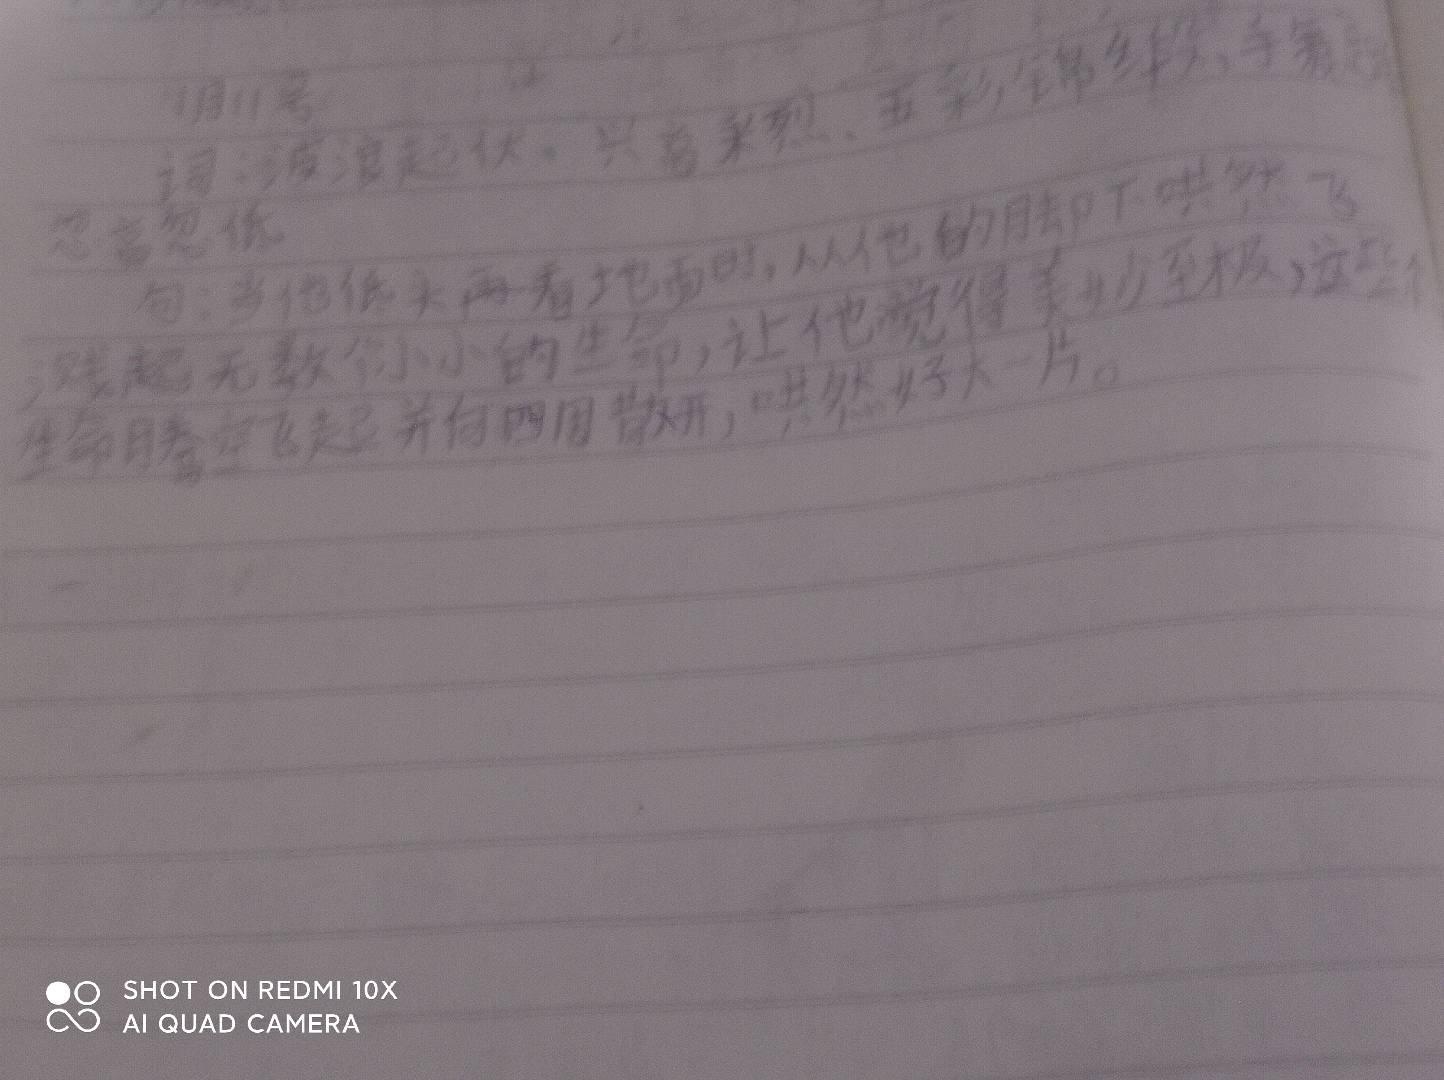 1月11号
词：波浪起伏。兴高采烈、五彩锦缎、手舞足
忽高忽低
句：当他低头再看地面时，从他的脚下哄然飞
溅起无数个小小的生命，让他觉得美妙至极，这些
生命腾空飞起并向四周散开，哄然好大一片。
SHOT ON REDMI 10X
AI QUAD CAMERA